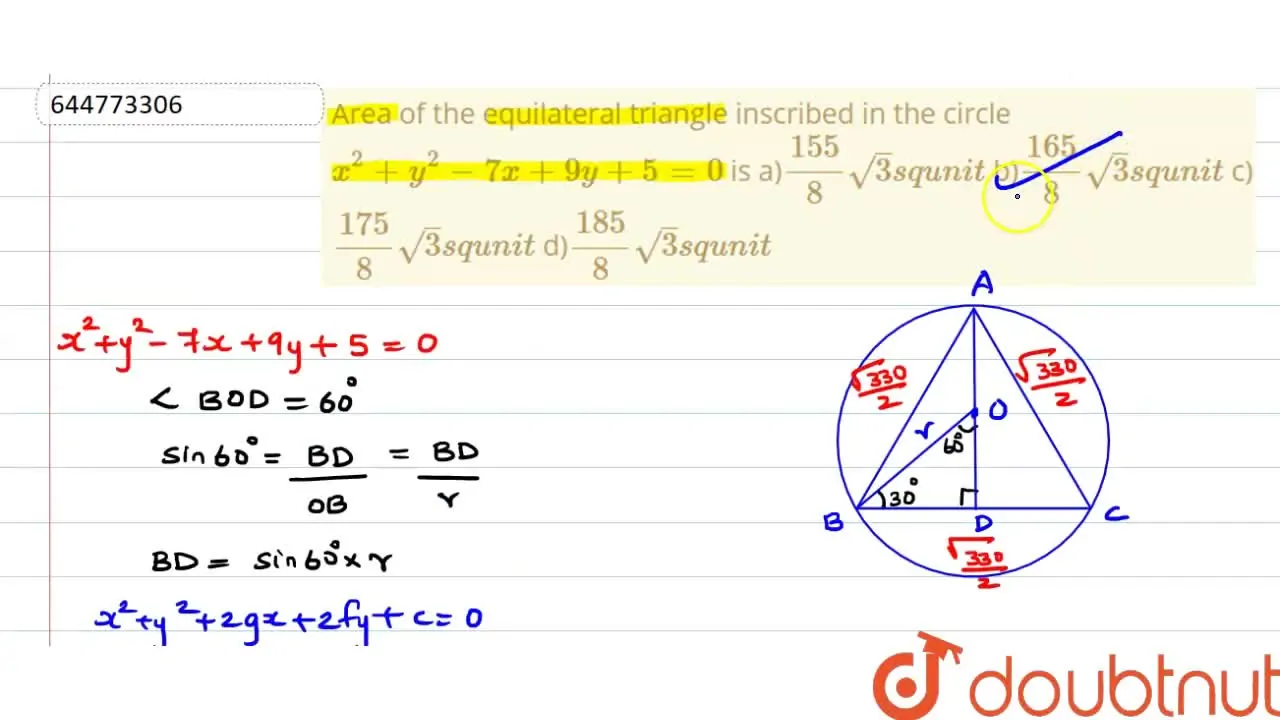 644773306
Area of the equilateral triangle inscribed in the circle
x² + y² − 7x + 9y + 5 = 0 is a) 155/8 √3 squnit b) 165/8 √3 squnit c)
175/8 √3 squnit d) 185/8 √3 squnit
x² + y² - 7x + 9y + 5 = 0
< BOD = 60°
sin 60° = BD/OB = BD/r
BD = sin 60° × r
x² + y² + 2gx + 2fy + c = 0
A
√330/2
√330/2
O
r
60°
30°
B
D
C
√330/2
doubtnut